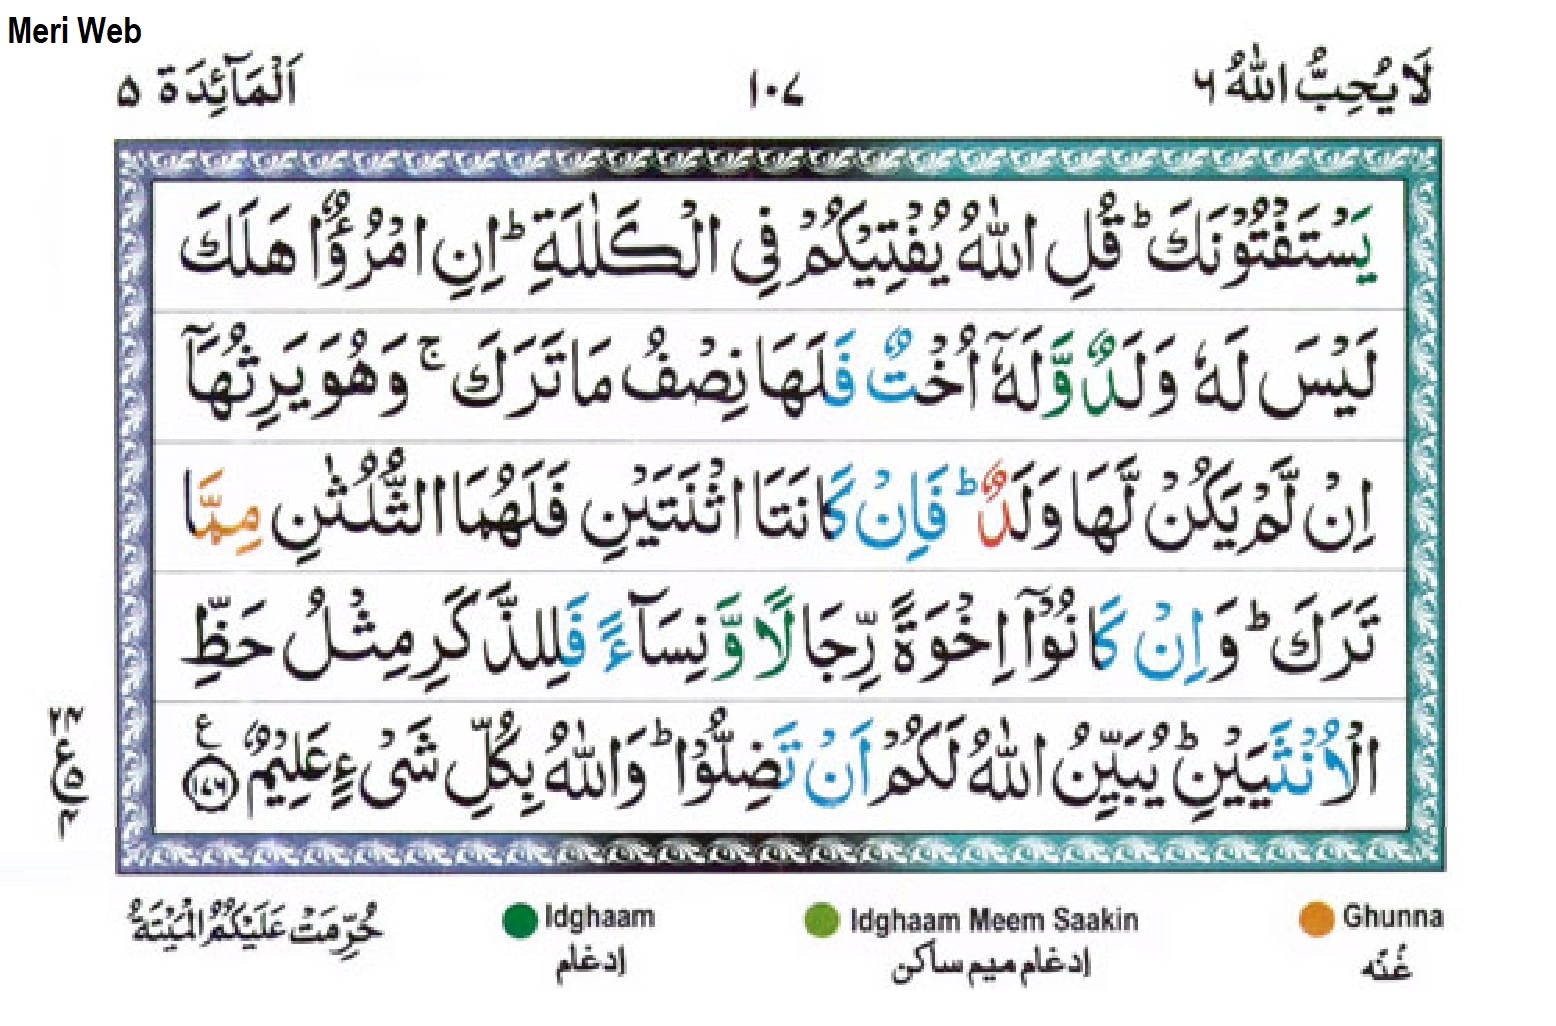 Meri Web
لَا یُحِبُّ اللّٰهُ ۶
۱۰۷
اَلْمَآئِدَة ۵
یَسْتَفْتُوْنَكَ ؕ قُلِ اللّٰهُ یُفْتِیْكُمْ فِی الْكَلٰلَةِ ؕ اِنِ امْرُؤٌا هَلَكَ
لَیْسَ لَهٗ وَلَدٌ وَّ لَهٗۤ اُخْتٌ فَلَهَا نِصْفُ مَا تَرَكَ ۚ وَهُوَ یَرِثُهَاۤ
اِنْ لَّمْ یَكُنْ لَّهَا وَلَدٌ ؕ فَاِنْ كَانَتَا اثْنَتَیْنِ فَلَهُمَا الثُّلُثٰنِ مِمَّا
تَرَكَ ؕ وَ اِنْ كَانُوْۤا اِخْوَةً رِّجَالًا وَّ نِسَآءً فَلِلذَّكَرِ مِثْلُ حَظِّ
الْاُنْثَیَیْنِ ؕ یُبَیِّنُ اللّٰهُ لَكُمْ اَنْ تَضِلُّوْا ؕ وَاللّٰهُ بِكُلِّ شَیْءٍ عَلِیْمٌ ۱۷۶ ع
۲۴
ع
۵
۴
حُرِّمَتْ عَلَیْكُمُ الْمَیْتَةُ
Idghaam
ادغام
Idghaam Meem Saakin
ادغام میم ساكن
Ghunna
غُنّه